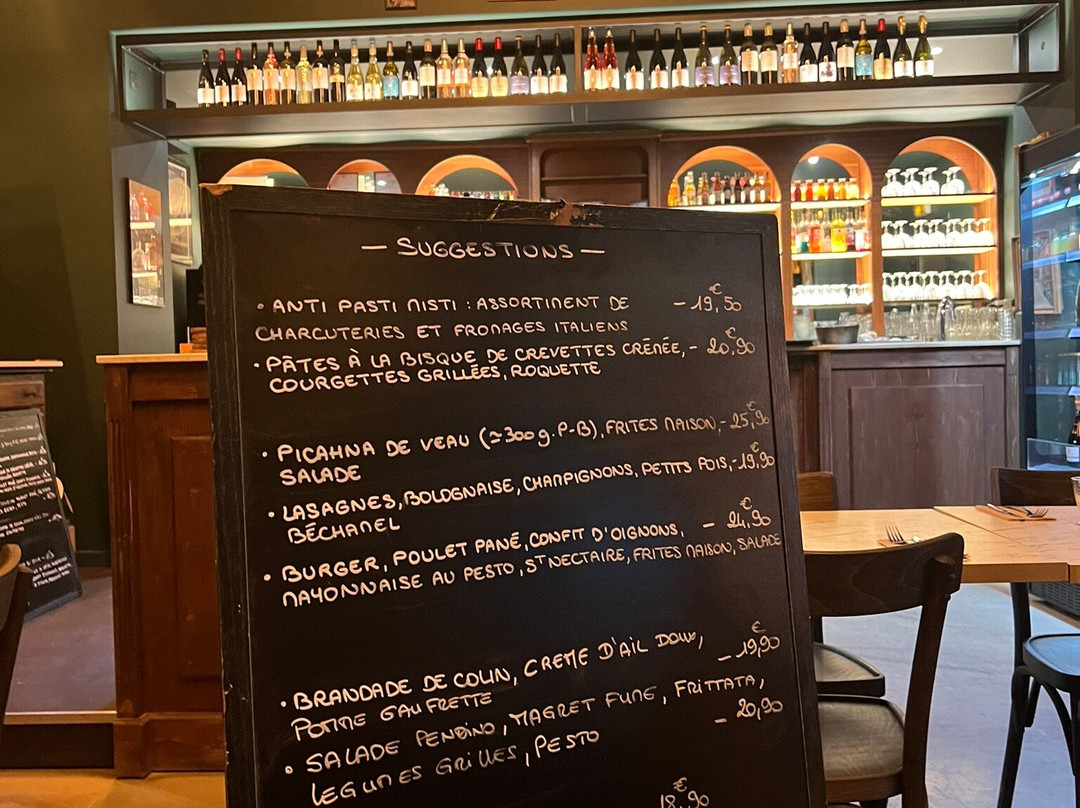 — SUGGESTIONS —
• ANTI PASTI MISTI : ASSORTIMENT DE – 19,50 €
CHARCUTERIES ET FROMAGES ITALIENS
• PÂTES À LA BISQUE DE CREVETTES CRÉMÉE, – 20,90 €
COURGETTES GRILLÉES, ROQUETTE
• PICAHNA DE VEAU (≃300g. P-B), FRITES MAISON, – 25,90 €
SALADE
• LASAGNES, BOLOGNAISE, CHAMPIGNONS, PETITS POIS, – 19,90 €
BÉCHAMEL
• BURGER, POULET PANÉ, CONFIT D'OIGNONS, – 24,90 €
MAYONNAISE AU PESTO, ST NECTAIRE, FRITES MAISON, SALADE
• BRANDADE DE COLIN, CREME D'AIL DOUX, – 19,90 €
POMME GAUFRETTE
• SALADE PENSINO, MAGRET FUME, FRITTATA, – 20,90
LEGUMES GRILLES, PESTO
18,90 €